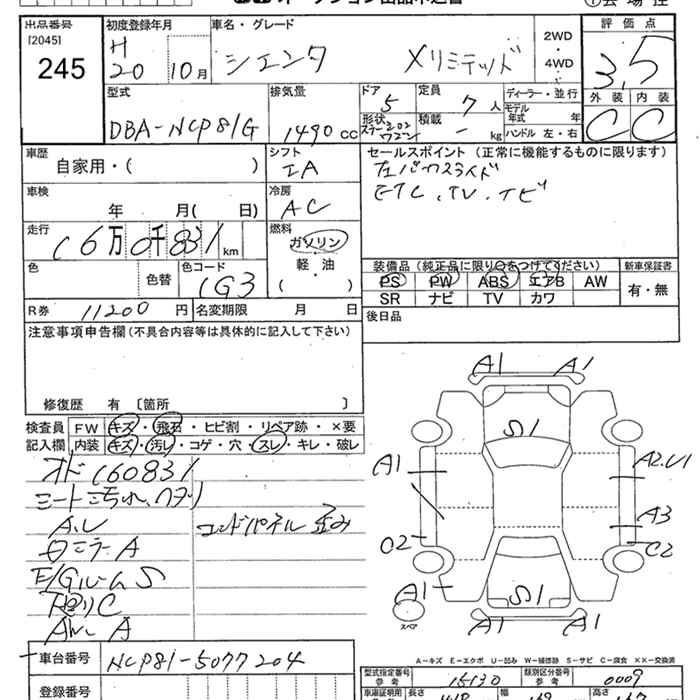 出品番号
[2045]
245
初度登録年月
H
20 10月
車名・グレード
シエンタ Xリミテッド
2WD
・
4WD
評価点
3.5
外装 内装
C C
型式
DBA-NCP81G
排気量
1490 cc
ドア
5
定員
7人
形状
積載
- kg
ディーラー・並行
モデル
年式 年
ハンドル 左・右
車歴
自家用・( )
シフト
IA
セールスポイント(正常に機能するものに限ります)
左パワースライド
ETC.TV.ナビ
車検
年 月( 日)
冷房
AC
走行
16万0千831km
燃料
ガソリン
軽・油
( )
色
色替
色コード
1G3
装備品(純正品に限り○をつけてください)
PS PW ABS エアB AW
SR ナビ TV カワ
新車保証書
有・無
R券 11200円
名変期限 月 日
後日品
注意事項申告欄(不具合内容等は具体的に記入して下さい)
修復歴 有 〔箇所 〕
検査員
記入欄
FW キズ・飛石・ヒビ割・リペア跡・×要
内装 キズ・汚レ・コゲ・穴・スレ・キレ・破レ
オド160831
シート汚れ、ヘタリ
コンドパネル歪み
ミラーA
E/GルームS
下廻りC
A1 A1
S1
A1
A2.U1
A3
C2
C2
A1
S1
A1 A1
スペア
A-キズ E-エクボ U-凹み W-補修跡 S-サビ C-腐食 XX-交換済
車台番号 NCP81-5077204
登録番号
型式指定番号
参考
15130
類別区分番号
参考
0009
車庫証明用
長さ
幅
高さ